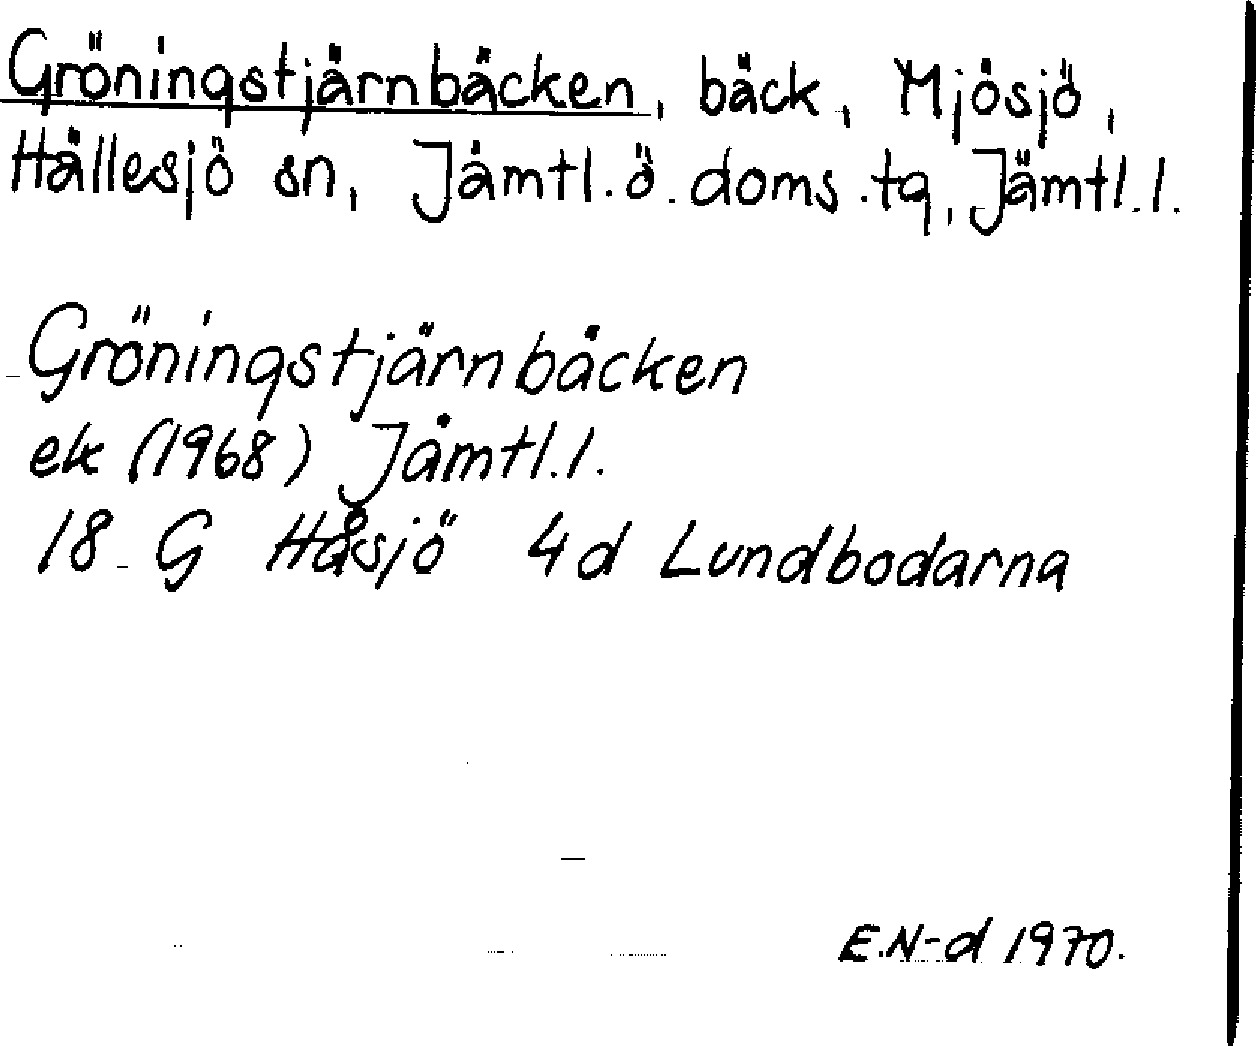 Gröningstjärnbäcken, bäck, Mjösjö,
Hällesjö sn, Jämtl. ö. doms. tg, Jämtl. l.
Gröningstjärnbäcken
ek (1968) Jämtl. l.
18 G Håsjö 4d Lundbodarna
E.N-d 1970.